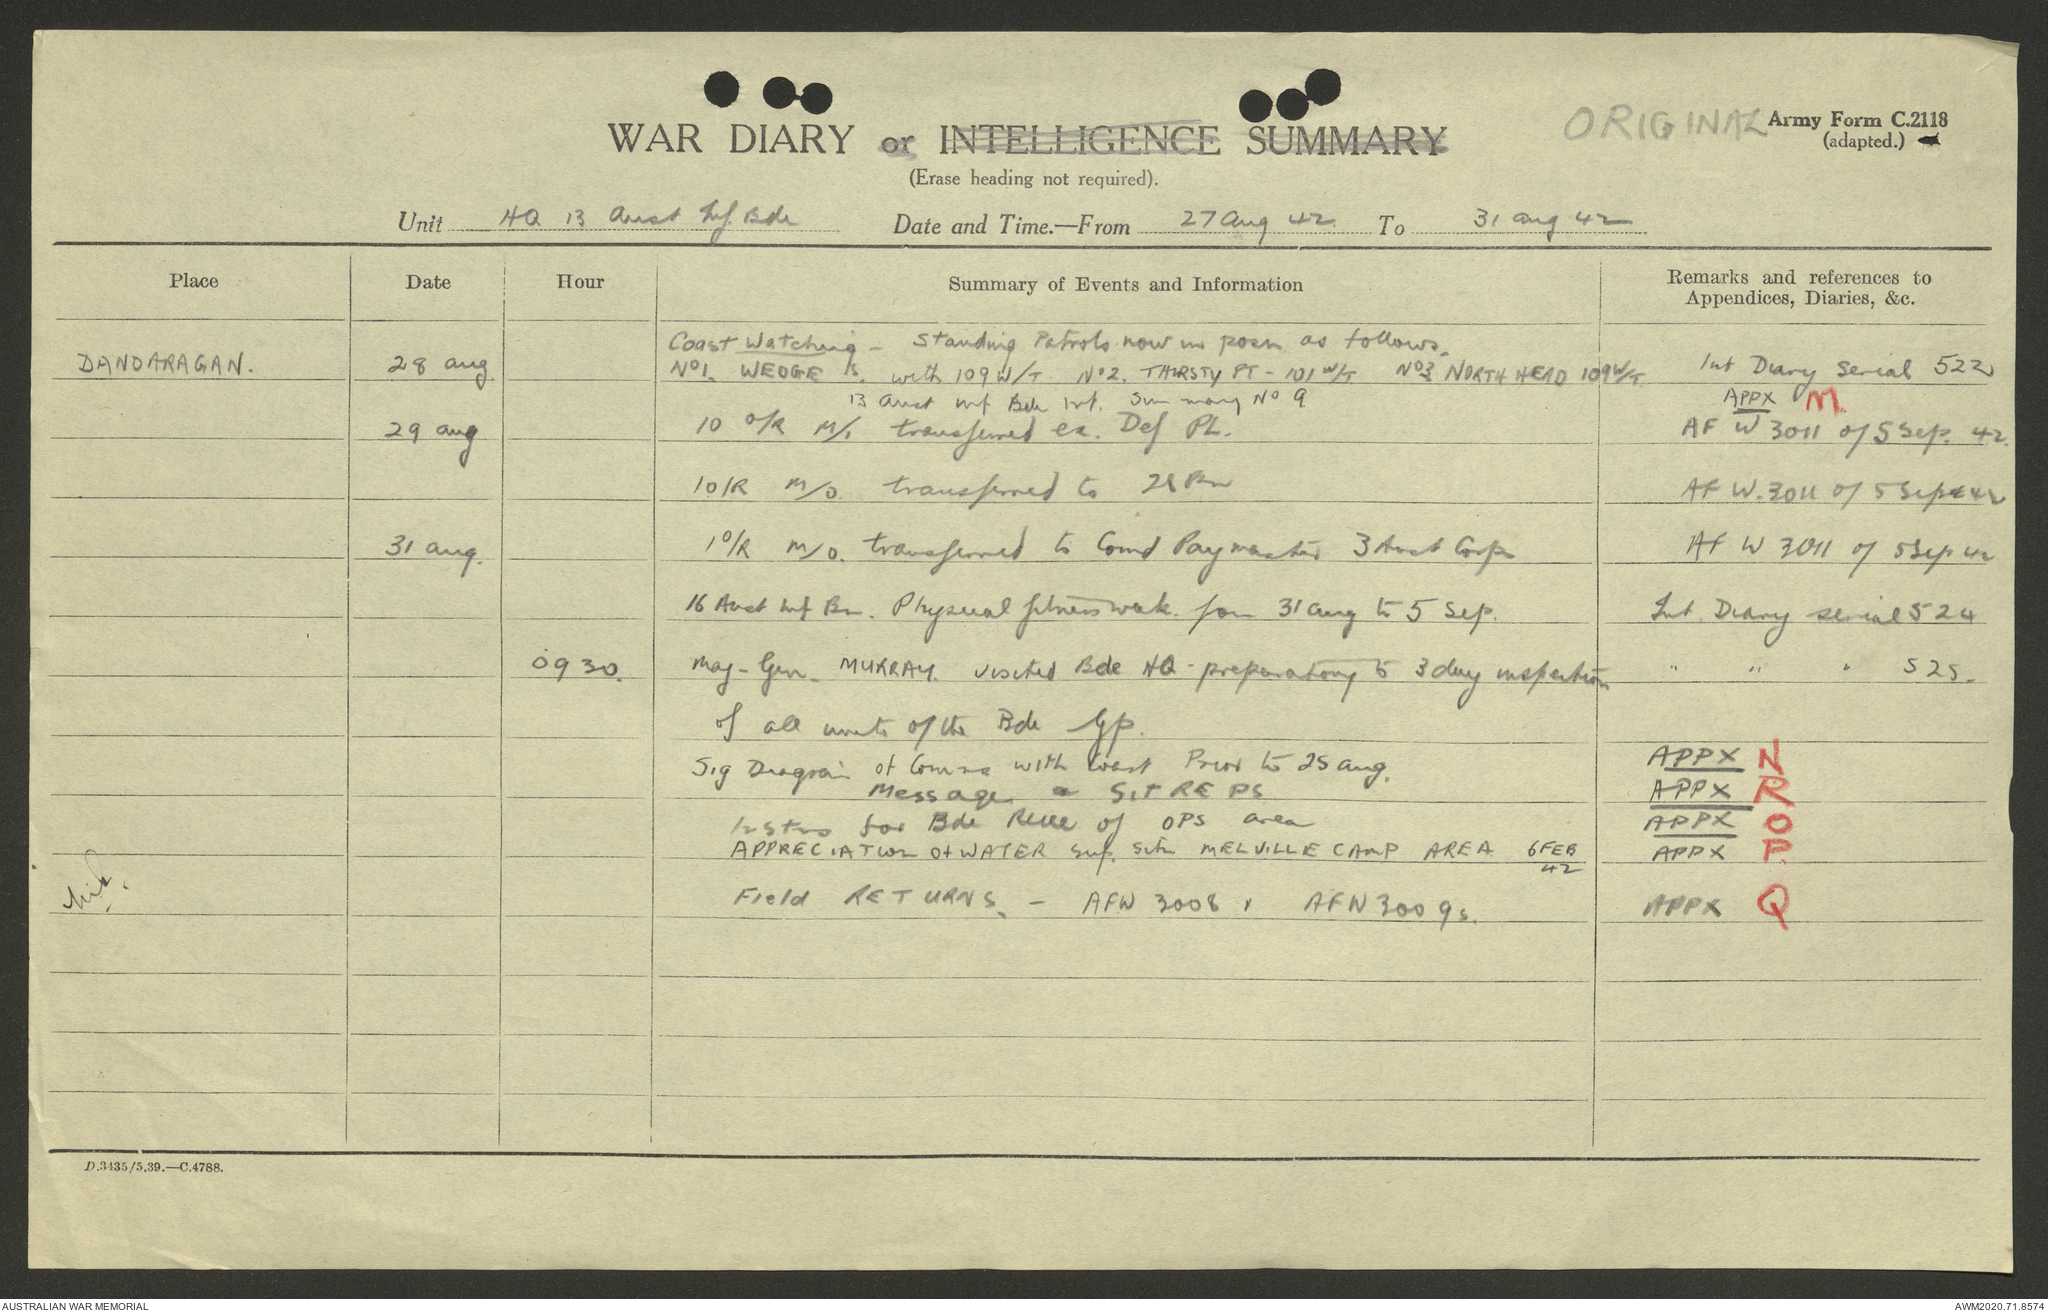 ORIGINAL
Army Form C.2118
(adapted.)
WAR DIARY or INTELLIGENCE SUMMARY
(Erase heading not required).
Unit HQ 13 Aust Inf. Bde Date and Time.—From 27 Aug 42 To 31 Aug 42
Place Date Hour Summary of Events and Information Remarks and references to Appendices, Diaries, &c.
Coast Watching - Standing Patrols now in posn as follows.
DANDARAGAN. 28 Aug No1. WEDGE Is. with 109 W/T No2. THIRSTY PT - 101 W/T No3 NORTH HEAD 109 W/T Int Diary Serial 522
13 Aust Inf Bde Int. Summary No 9 APPX M
29 Aug 10 O/R M/I transferred ex. Def PL. AF W 3011 of 5 Sep. 42.
10/R M/O. transferred to 28 Bn AF W.3011 of 5 Sep 42
31 Aug. 1 O/R M/O. transferred to Comd Paymaster 3 Aust Corps AF W 3011 of 5 Sep 42
16 Aust Inf Bn. Physical fitness week from 31 Aug to 5 Sep. Int. Diary serial 524
0930. Maj-Gen. MURRAY. visited Bde HQ - preparatory to 3 day inspection " " " 525.
of all units of the Bde Gp.
Sig Diagram of Comns with Coast Prior to 25 Aug. APPX N
Message SITREPS APPX R
Instns for Bde Recce of OPS area APPX O
APPRECIATION of WATER Sup. Sitn MELVILLE CAMP AREA 6 FEB 42 APPX P
Field RETURNS. - AFW 3008, AFW 3009s. APPX Q
D.3435/5.39.—C.4788.
AUSTRALIAN WAR MEMORIAL
AWM2020.71.8574